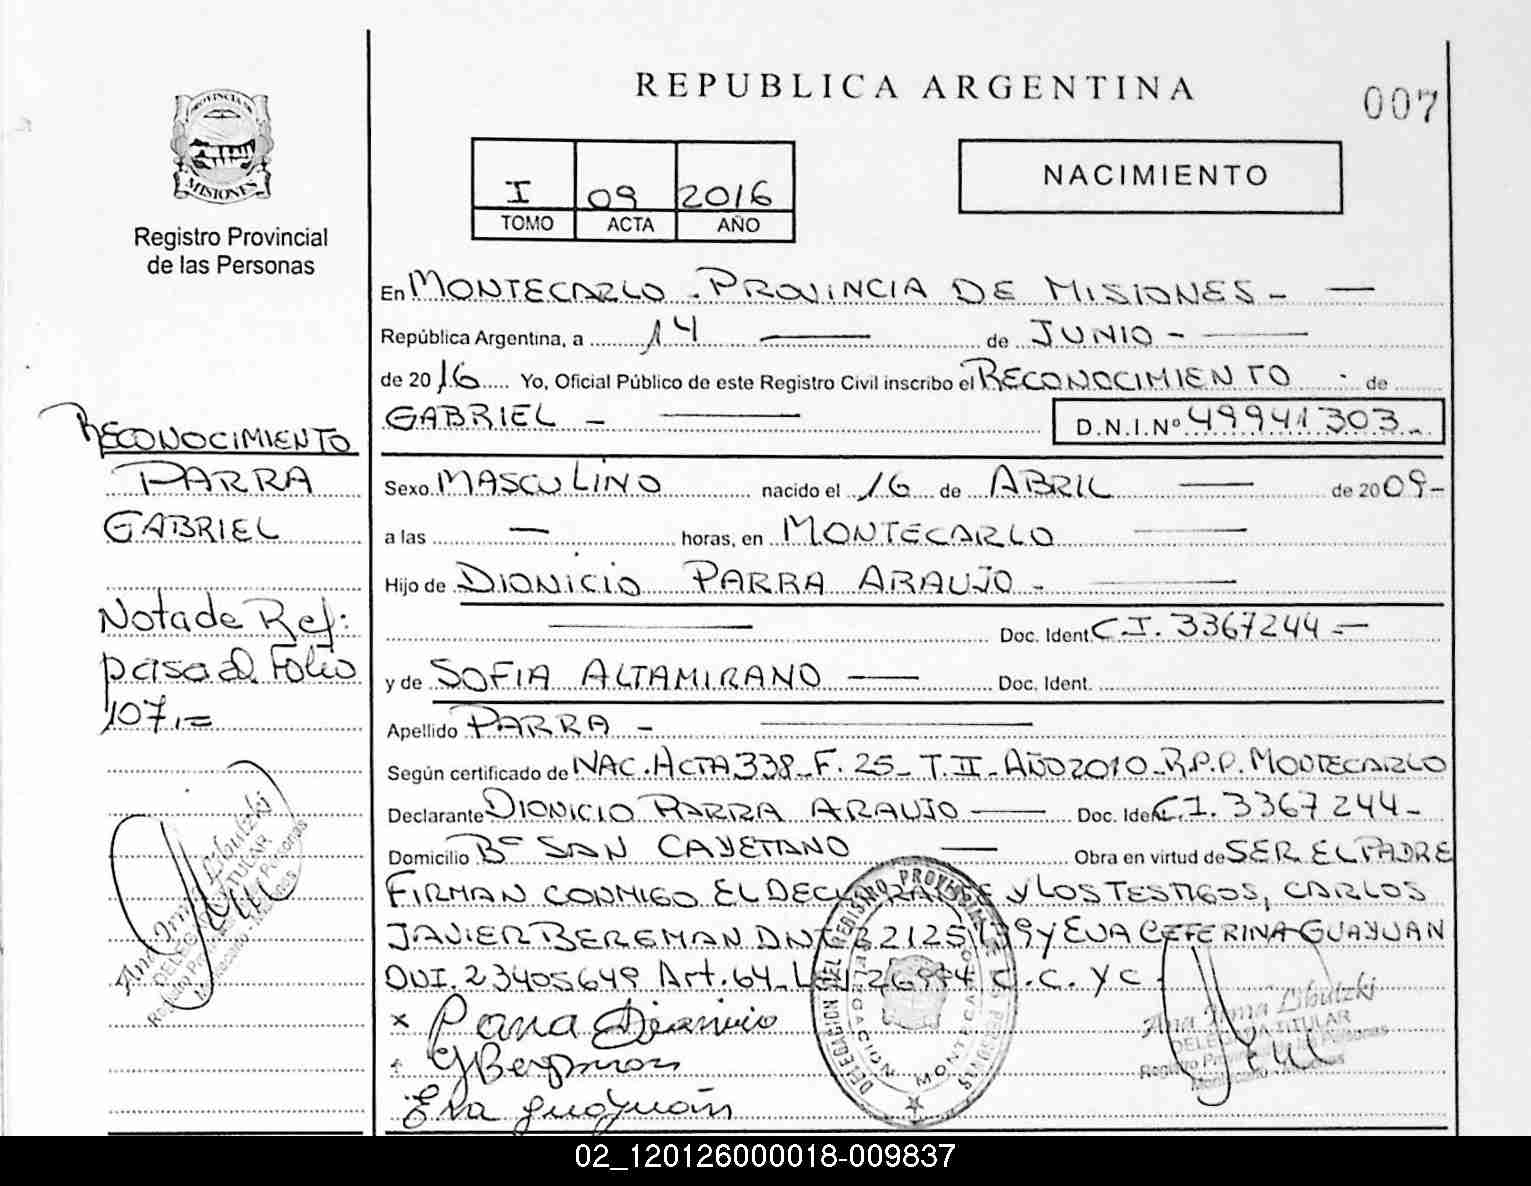 REPUBLICA ARGENTINA
007
PROVINCIA DE
MISIONES
Registro Provincial
de las Personas
I 09 2016
TOMO ACTA AÑO
NACIMIENTO
En MONTECARLO - PROVINCIA DE MISIONES -
República Argentina, a 14 de JUNIO -
de 2016 Yo, Oficial Público de este Registro Civil inscribo el RECONOCIMIENTO de
GABRIEL - D.N.I.Nº 49941303
Sexo MASCULINO nacido el 16 de ABRIL de 2009-
a las — horas, en MONTECARLO
Hijo de DIONICIO PARRA ARAUJO -
Doc. Ident. C.I. 3367244 =
y de SOFIA ALTAMIRANO Doc. Ident.
Apellido PARRA -
Según certificado de NAC. ACTA 338 - F. 25 - T. II - AÑO 2010 - R.P.P. MONTECARLO
Declarante DIONICIO PARRA ARAUJO Doc. Ident. C.I. 3367244-
Domicilio Bº SAN CAYETANO Obra en virtud de SER EL PADRE
FIRMAN CONMIGO EL DECLARANTE Y LOS TESTIGOS, CARLOS
JAVIER BERGMAN DNI 32125139 Y EVA CEFERINA GUAYUAN
DNI. 23405649 Art. 64 - LEY 26994 C.C. Y C -
x Parra Dionicio
Bergman
Eva guayuán
RECONOCIMIENTO
PARRA
GABRIEL
Nota de Ref:
pasa al Folio
107.=
Ana Irma Libutzki
DELEGADA TITULAR
Registro Provincial de las Personas
Montecarlo - Misiones
DELEGACION DEL REGISTRO PROVINCIAL DE LAS PERSONAS
MONTECARLO
Ana Irma Libutzki
DELEGADA TITULAR
Registro Provincial de las Personas
Montecarlo - Misiones
02_120126000018-009837